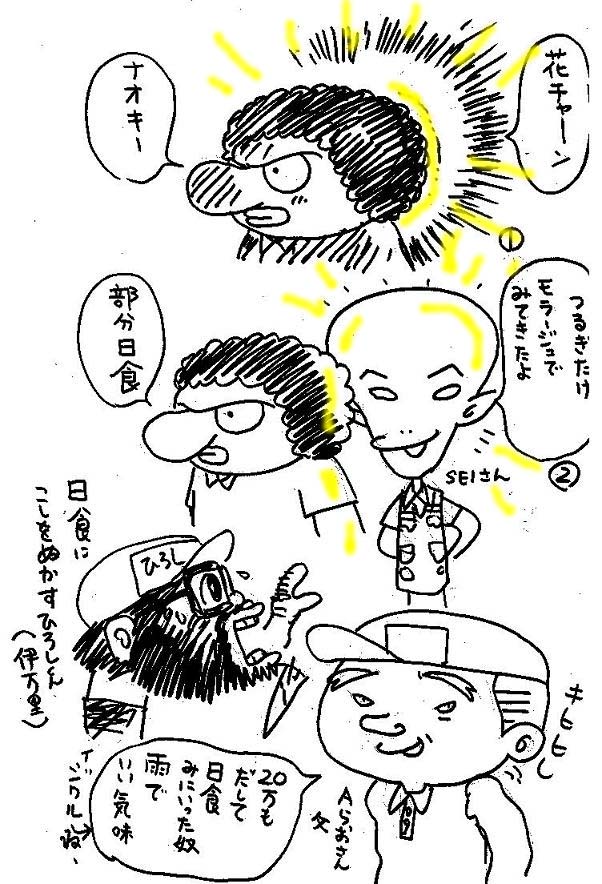 花チャーン
ナオキー
①
つるぎたけ
モラージュで
みてきたよ
②
部分日食
SEIさん
日食に
こしをぬかすひろしくん
(伊万里)
ひろし
キヒヒヒ
20万も
だして
日食
みにいった奴
雨で
いい気味
Aらおさん
父